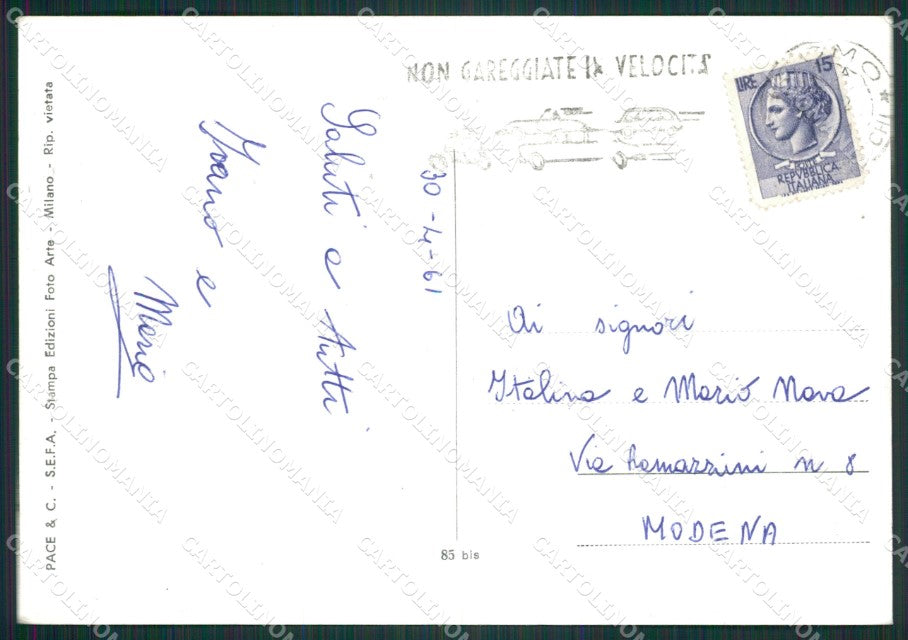 NON GAREGGIATE IN VELOCITÀ
LIRE 15
REPVBBLICA
ITALIANA
30-4-61
Saluti a tutti
Ivano e
Mario
Ai signori
Italina e Mario Nava
Via Ramazzini n 8
MODENA
85 bis
PACE & C. - S.E.F.A. - Stampa Edizioni Foto Arte - Milano - Rip. vietata
CARTOLINOMANIA